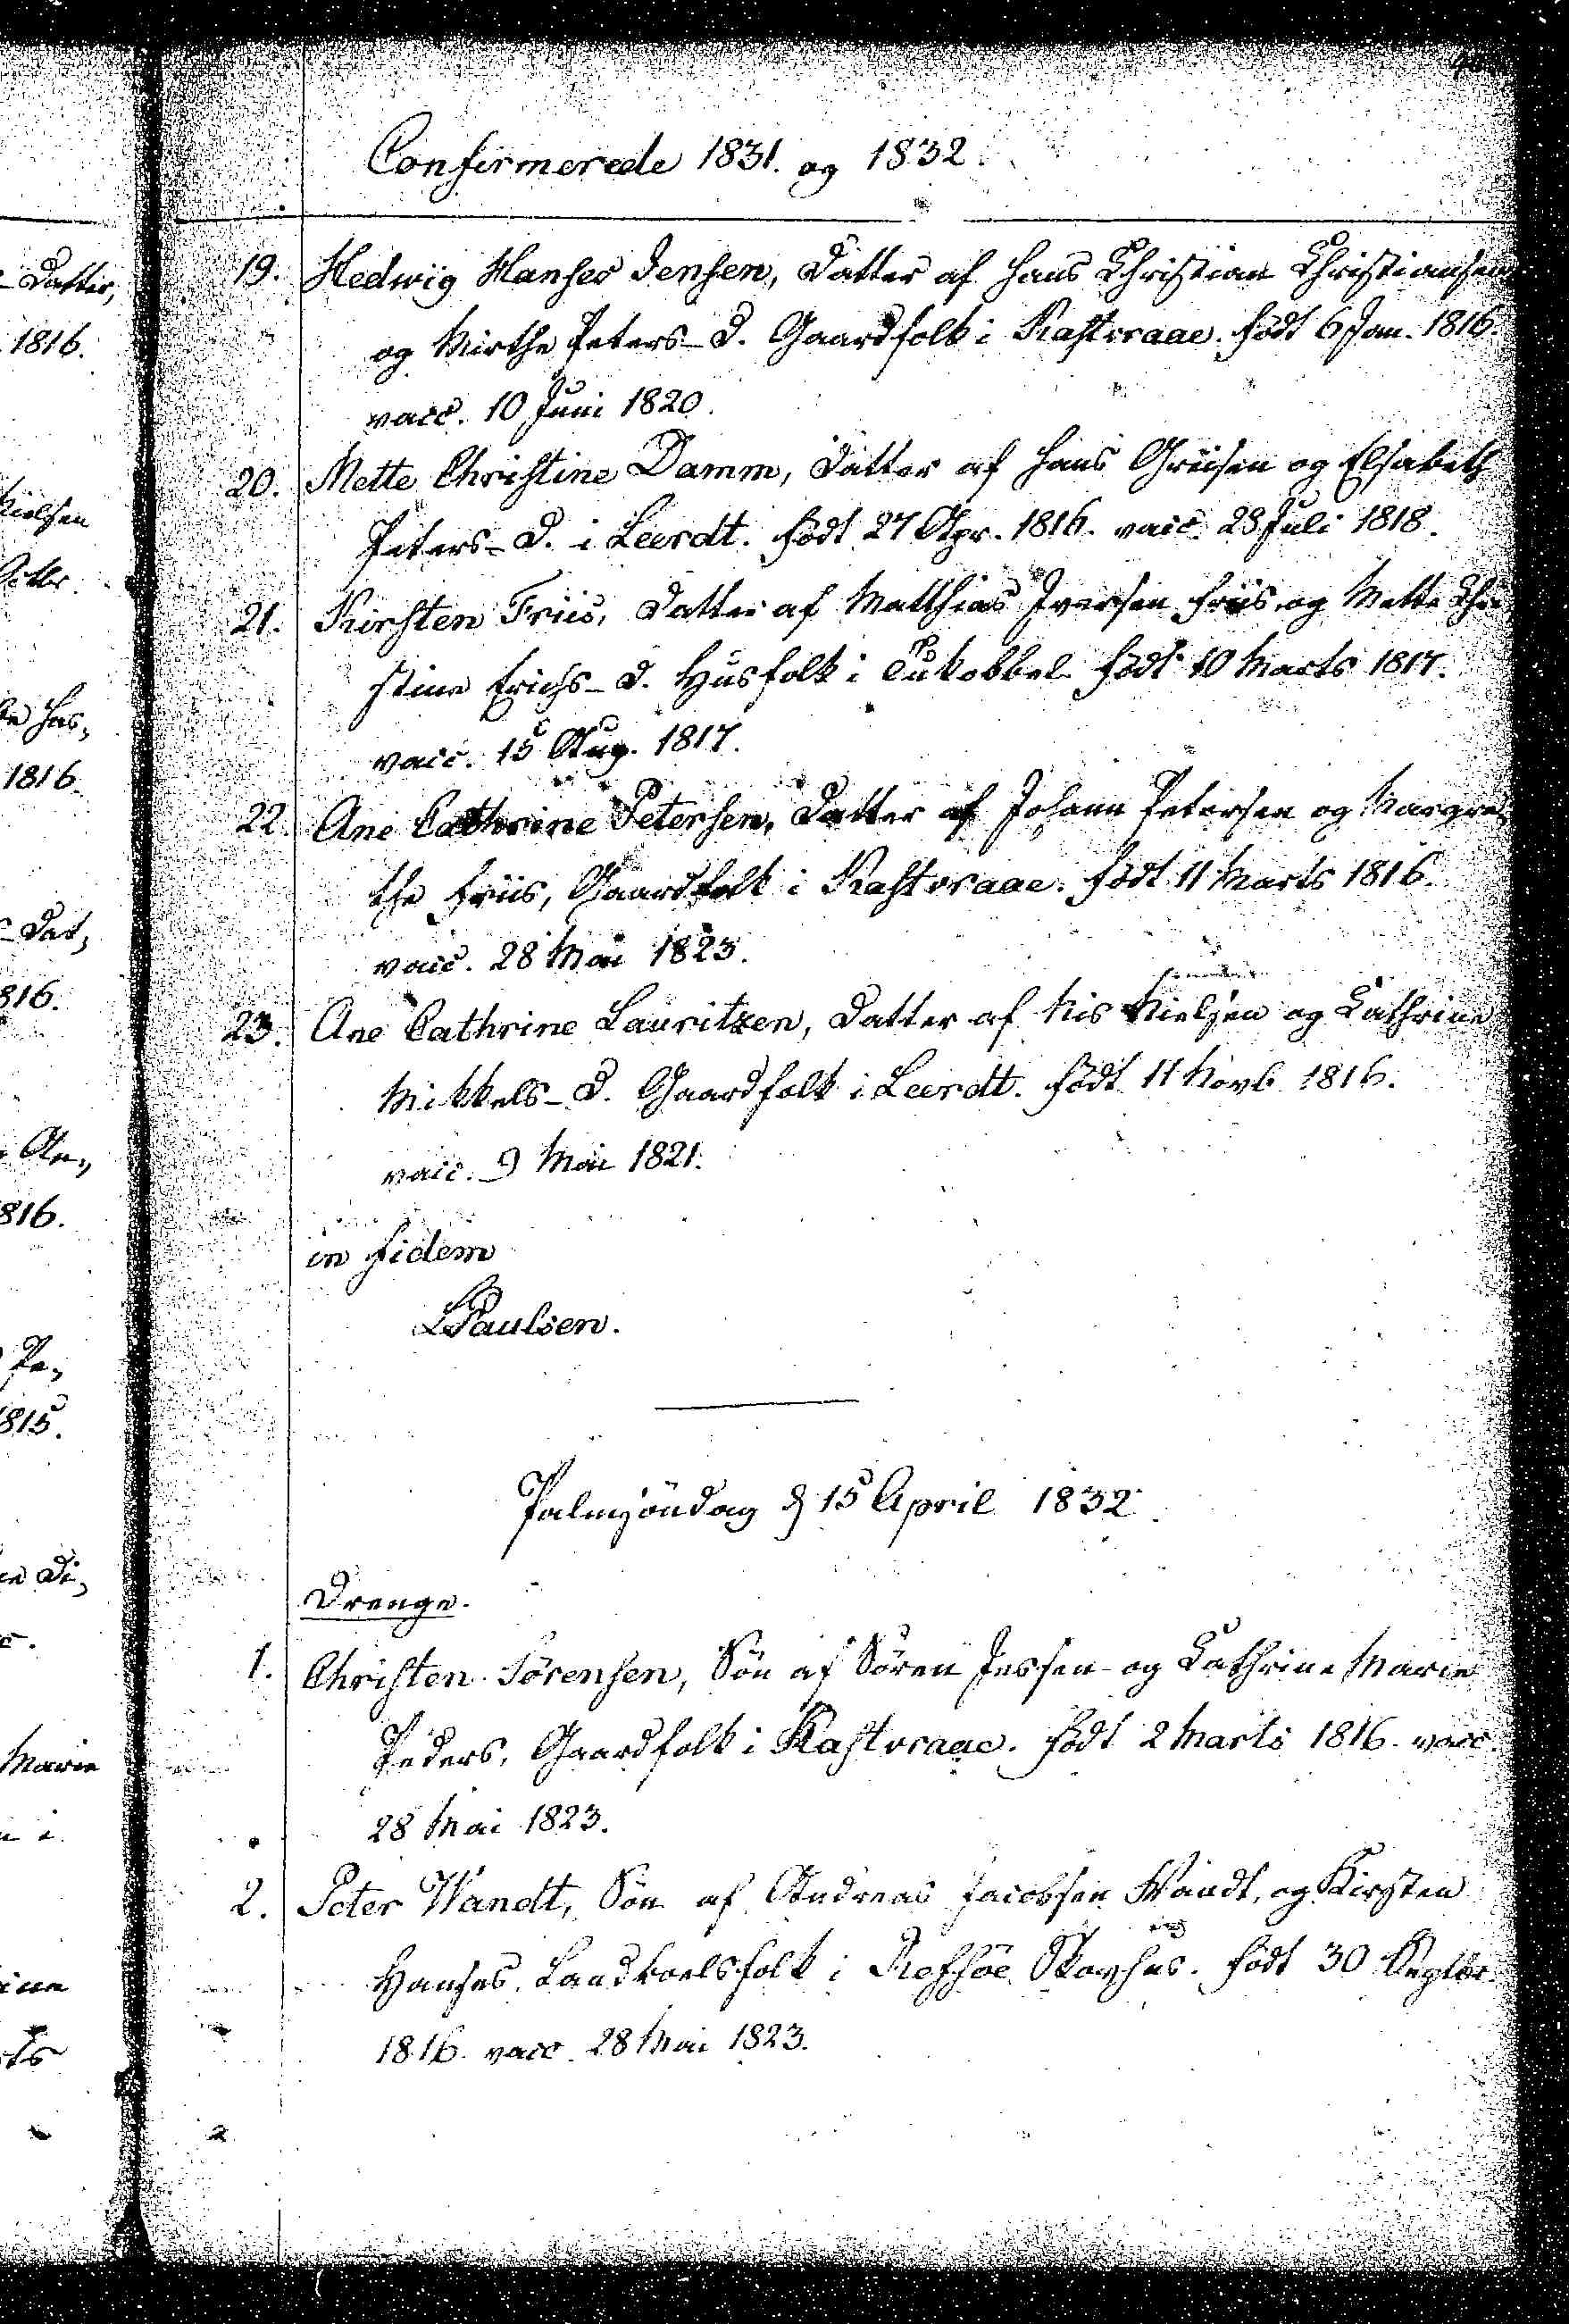 Confirmerede 1831. og 1832.
19. Hedwig Hanses Jensen, Datter af Hans Christian Christiansen
og Mirthe Peters-D. Gaardfolk i Kastvraae. født 6 Jan. 1816.
vacc. 10 Juni 1820.
20. Mette Christine Damm, Datter af Hans Griisen og Elsabeth
Peters-D. i Leerdt. født 27 Apr. 1816. vacc. 28 Juli 1818.
21. Kirsten Friis, Datter af Matthias Iversen Friis og Mette Chri-
stine Erichs-D. Huusfolk i Tukobbel født 10 Marts 1817.
vacc. 15 Aug. 1817.
22. Ane Cathrine Petersen, Datter af Johann Petersen og Margre-
the Friis, Gaardfolk i Kastvraae. født 11 Marts 1816.
vacc. 28 Mai 1823.
23. Ane Cathrine Lauritzen, Datter af Nis Nielsen og Cathrine
Mikkels-D. Gaardfolk i Leerdt. født 11 Novb. 1816.
vacc. 9 Mai 1821.
in fidem
LPaulsen.
Palmsøndag d 15 April 1832.
Drenge.
1. Christen Sørensen, Søn af Søren Jessen og Cathrine Marie
Peders, Gaardfolk i Kastvraae. født 2 Marts 1816. vacc.
28 Mai 1823.
2. Peter Wandt, Søn af Andreas Jacobsen Wandt, og Kirsten
Hanses, Landboelsfolk i Refsöe Skovhus. født 30 Septbr
1816. vacc. 28 Mai 1823.
Datter,
1816.
Nielsen
1816.
816.
816.
1815.
Marie